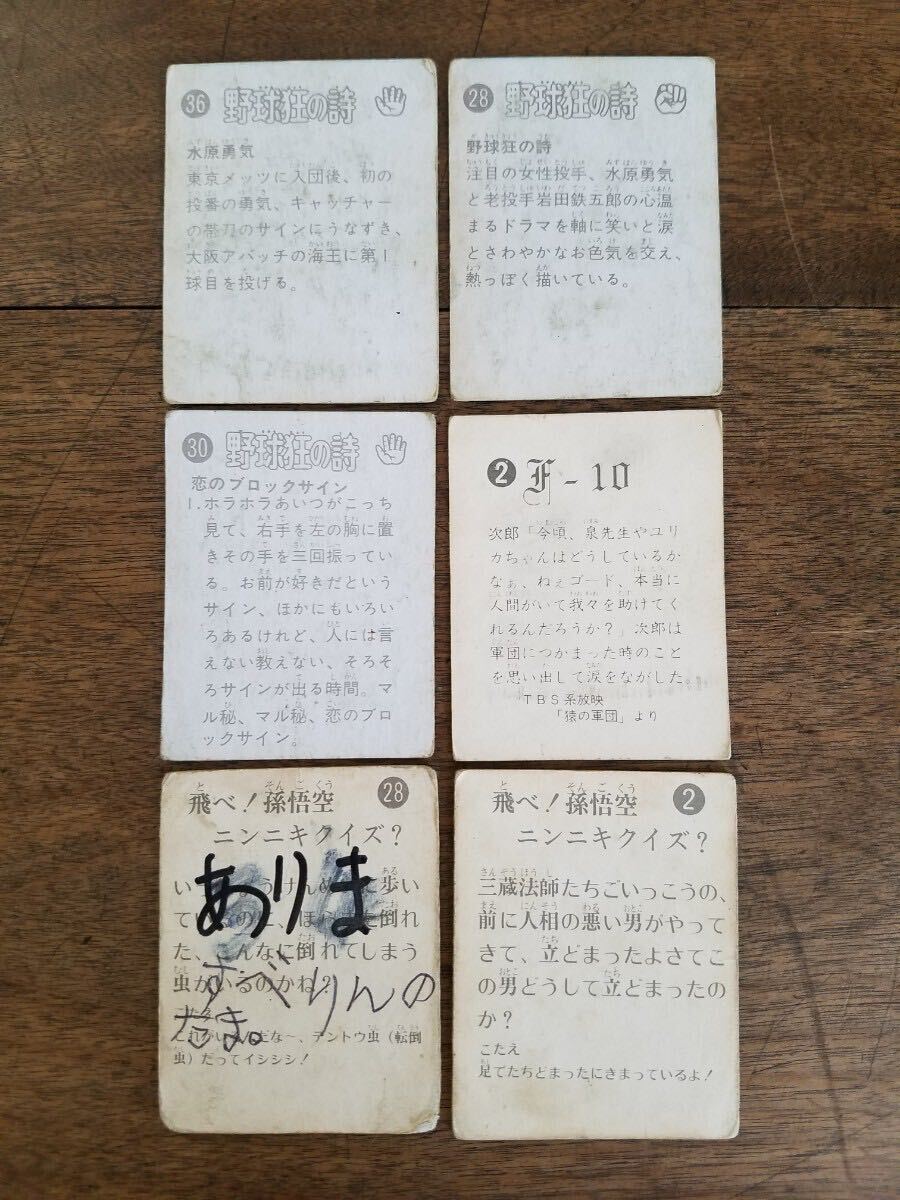 36 野球狂の詩
水原勇気
東京メッツに入団後、初の
投番の勇気、キャッチャー
の帯刀のサインにうなずき、
大阪アパッチの海王に第1
球目を投げる。
28 野球狂の詩
野球狂の詩
注目の女性投手、水原勇気
と老投手岩田鉄五郎の心温
まるドラマを軸に笑いと涙
とさわやかなお色気を交え、
熱っぽく描いている。
30 野球狂の詩
恋のブロックサイン
1.ホラホラあいつがこっち
見て、右手を左の胸に置
きその手を三回振ってい
る。お前が好きだという
サイン、ほかにもいろい
ろあるけれど、人には言
えない教えない、そろそ
ろサインが出る時間。マ
ル秘、マル秘、恋のブロ
ックサイン。
2 F-10
次郎「今頃、泉先生やユリ
カちゃんはどうしているか
なぁ、ねぇゴード、本当に
人間がいて我々を助けてく
れるんだろうか?」次郎は
軍団につかまった時のこと
を思い出して涙をながした。
TBS系放映
「猿の軍団」より
飛べ!孫悟空 28
ニンニキクイズ?
ありま
た、こんなに倒れてしまう
虫がいるのかね?
すべりんの
たま。
テントウ虫(転倒
虫)だってイシシシ!
飛べ!孫悟空 2
ニンニキクイズ?
三蔵法師たちごいっこうの、
前に人相の悪い男がやって
きて、立どまったよさてこ
の男どうして立どまったの
か?
こたえ
足でたちどまったにきまっているよ!